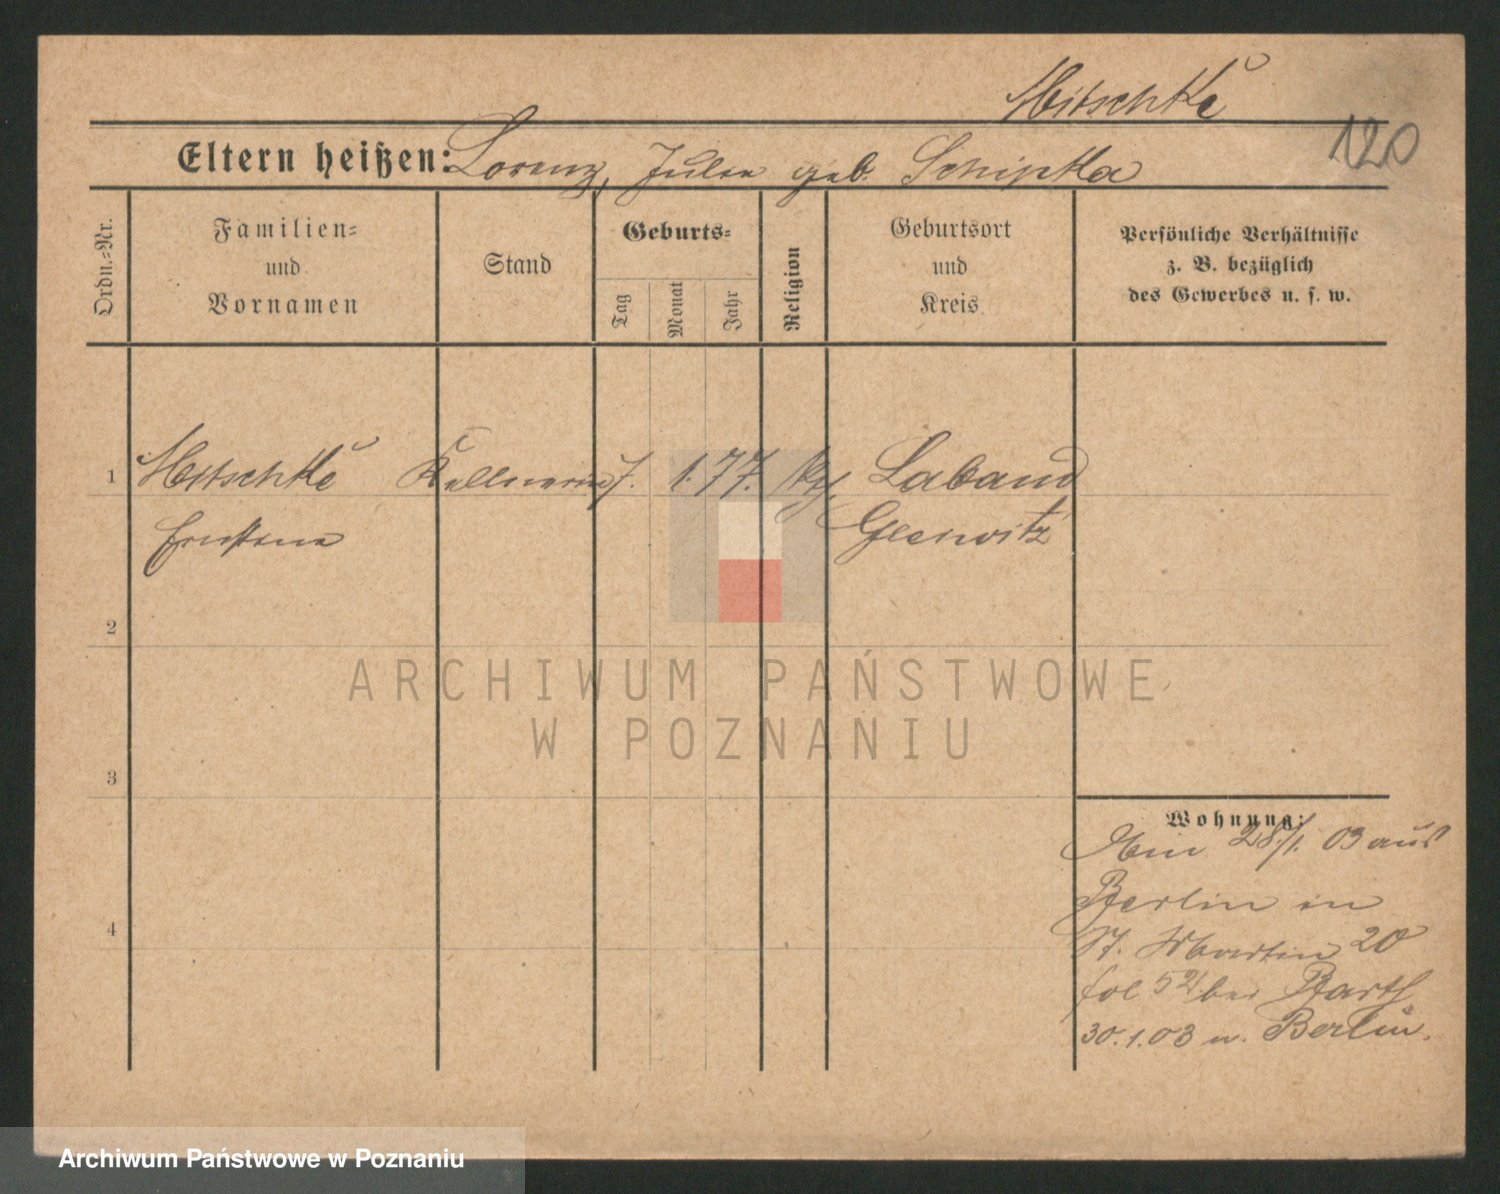 Mitschke
120
Eltern heißen: Lorenz, Julie geb. Schipka
Ordn.-Nr.
Familien-
und
Vornamen
Stand
Geburts-
Tag
Monat
Jahr
Religion
Geburtsort
und
Kreis
Persönliche Verhältnisse
z. B. bezüglich
des Gewerbes u. s. w.
1 Mitschke Kellnerin 7. 1. 77. Laband
Ernstine Gleiwitz
2
3
4
Wohnung:
28./1. 03 aus
Berlin in
St. Martin 20
fol 52 bei Barth
30.1.03 n. Berlin.
ARCHIWUM PAŃSTWOWE
W POZNANIU
Archiwum Państwowe w Poznaniu